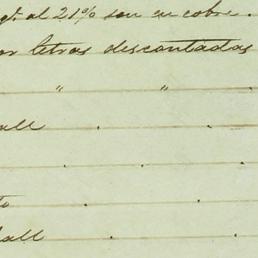 al 21% son en cobre.
letras descontadas
" "
all
.
to
all